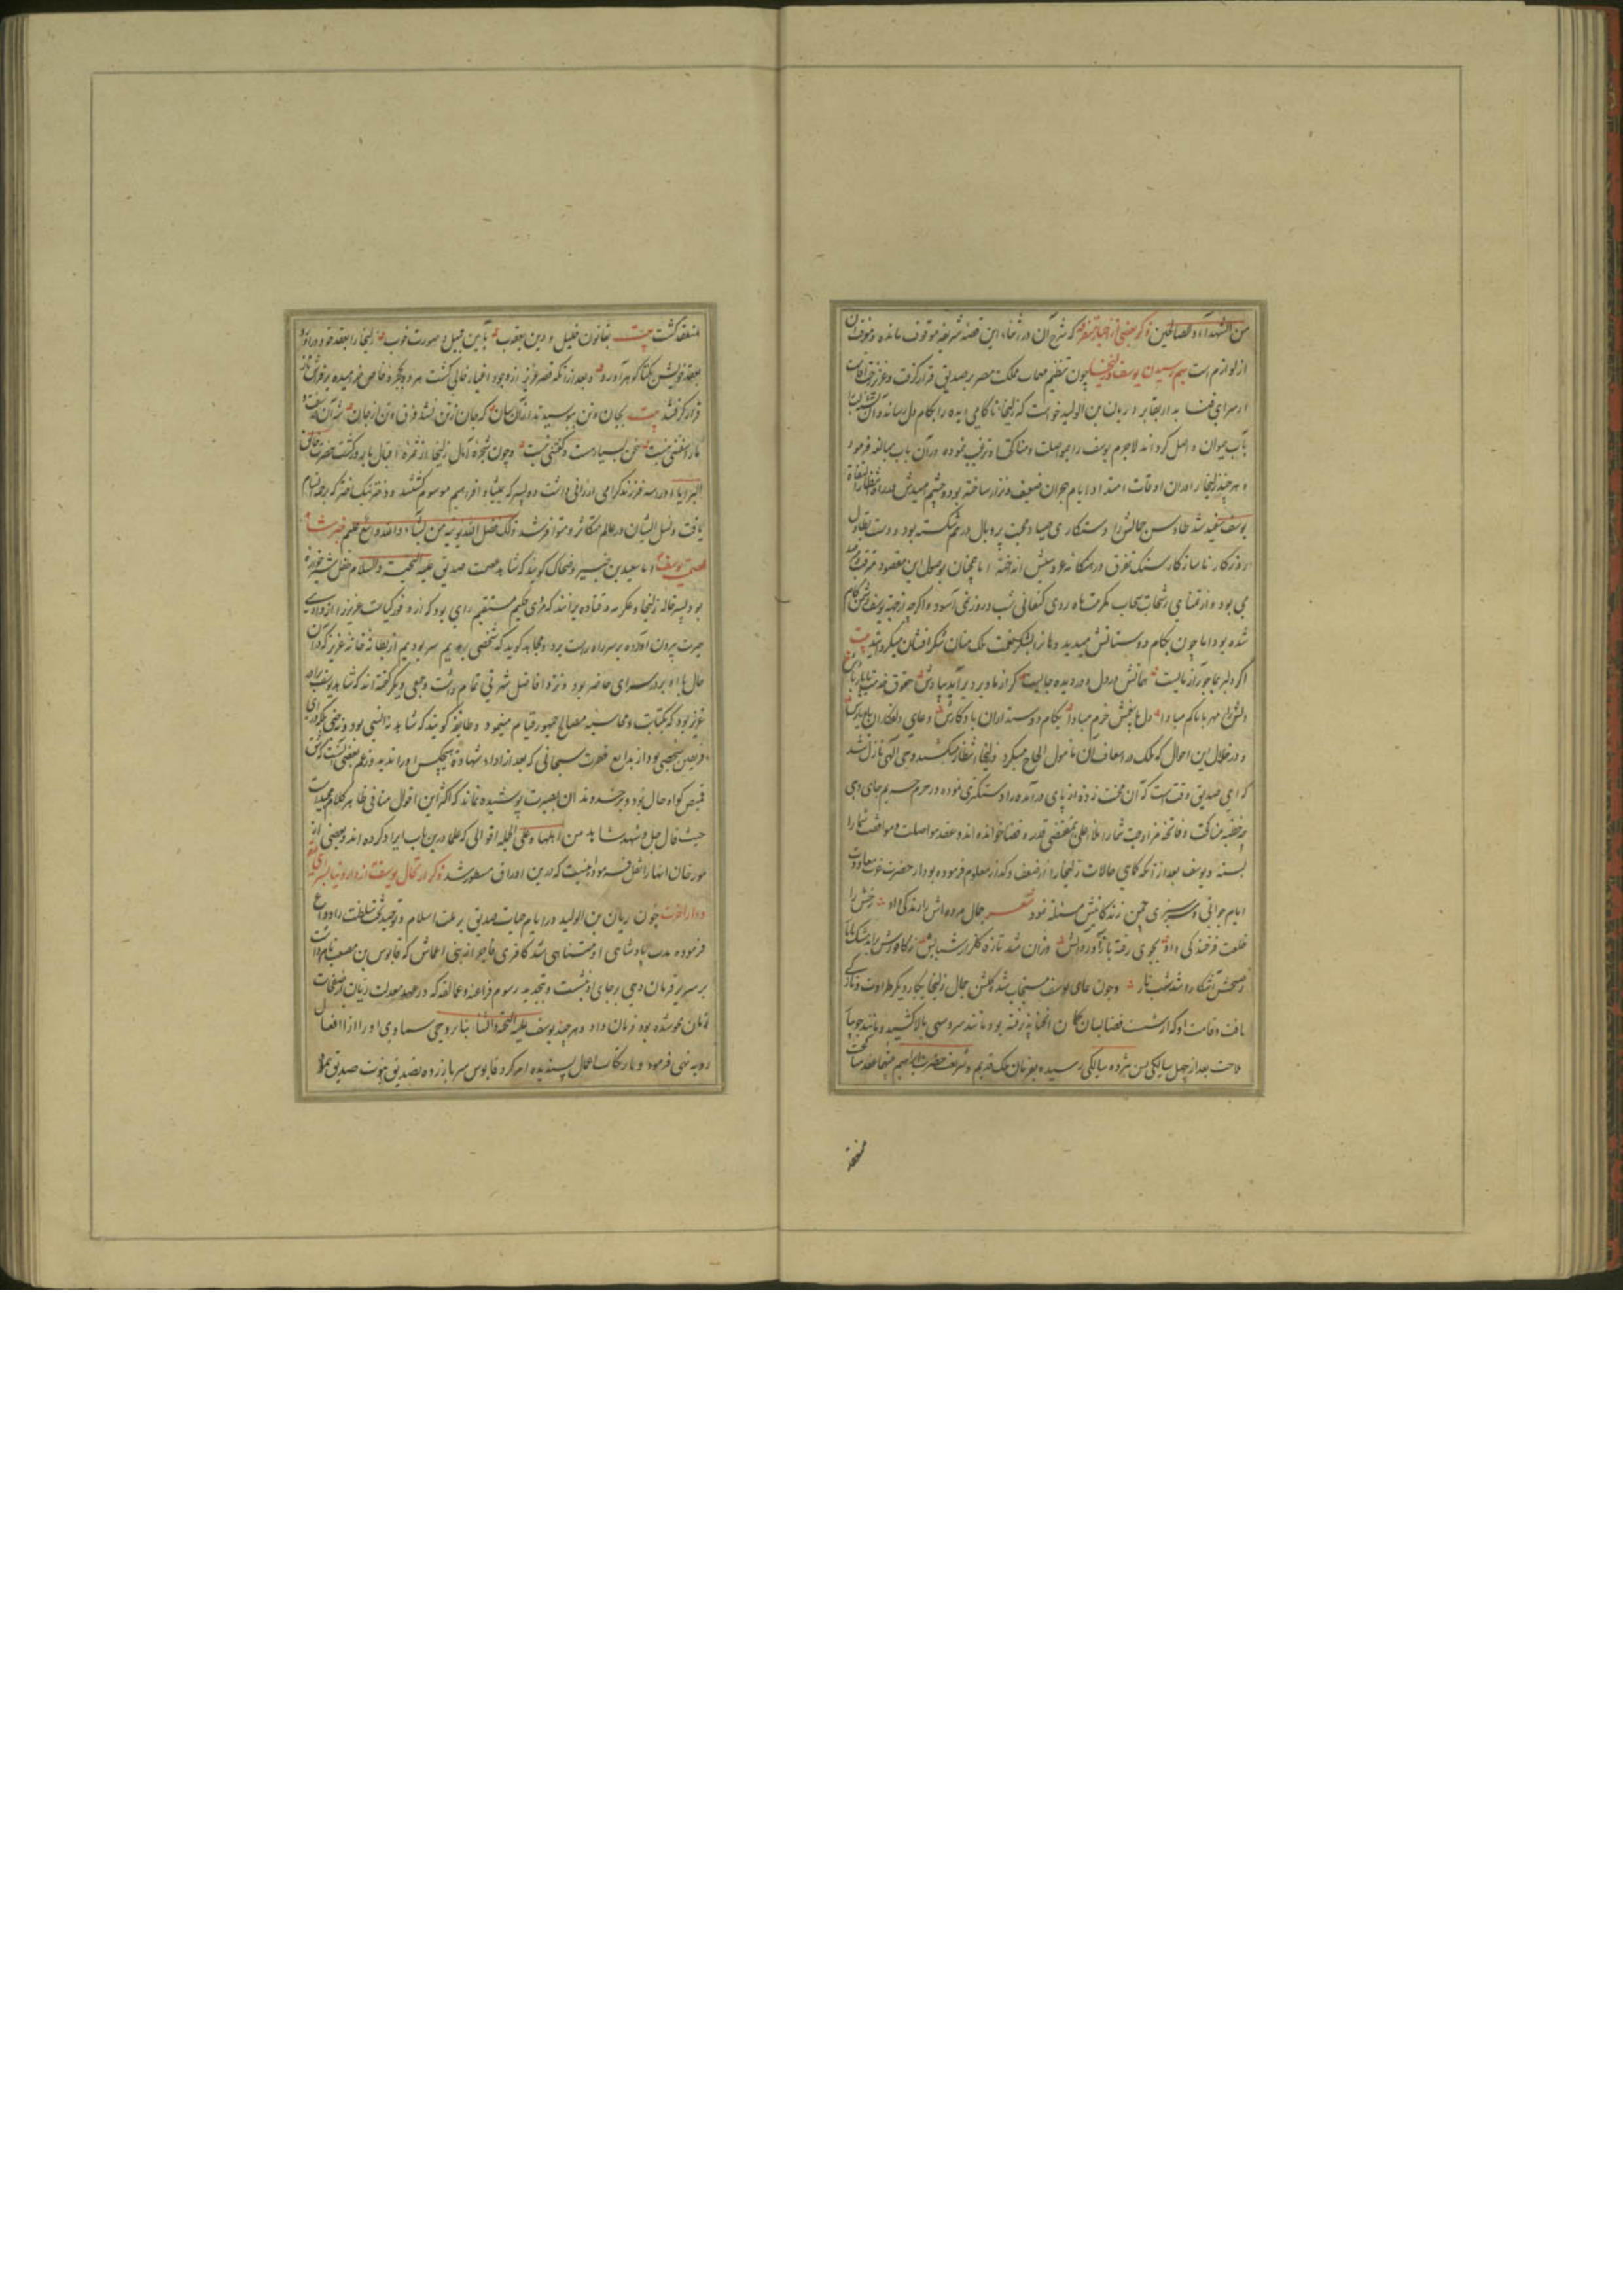 من الشهداء والصالحین ذکر بعضی از اخبار متفرقه که شرح آن در اثناء این قصه شریفه موقوف مانده و موقت آن
از لوازم است بهم رسیدن یوسف و زلیخا چون تنظیم مهمات مملکت مصر بر صدیق قرار گرفت و عزیز
از سرای فنا بدار بقا برد ریان بن الولید خواست که زلیخا ناکامی دیده را بکام دل رساند و آن
بآب حیوان واصل گرداند لاجرم یوسف را بمواصلت و مناکحت او ترغیب نموده در آن باب مبالغه فرمود
و هر چند زلیخا را در آن اوقات امتداد ایام هجران ضعیف و نزار ساخته بود و چشم امیدش در انتظار
یوسف سفید شد طاوس جمالش را دستکاری صیاد محبت پر و بال در هم شکسته بود و دست تطاول
روزکار ناسازکار سنک تفرق در هنکامه عیش انداخته اما همچنان بوصول این مقصود مترقب
می بود و از تمنای رشحات سحاب مکرمت ماه روی کنعانی شب و روز نمی آسود و اگرچه از جهة یوسف دشمن کام
شده بود اما چون بکام دوستانش میدید دهان را بشکر نعمت ملک منان شکر افشان میکردانید بیت
اکر دلبر بما جور آزمایست همانش در دل و در دیده جایست کر از ما دیر دیر آید بیادش حقوق خدمت ما یاد بادش
دلش را مهر با ما کم مبادا دل ما بی غمش خرم مبادا بکام دوستداران باد کارش دعای دلفکاران یار بادش
و در خلال این احوال که ملک در اسعاف آن مامول الحاح میکرد و زلیخا انتظار میکشید وحی الهی نازل شد
که ای صدیق وقت است که آن محنت زده از پای درآمده را دستکیری نموده در حرم حریم جای دهی
چه خطبه مناکحت و فاتحه مزاوجت شما را ملاء اعلی بمقتضی قدر و قضا خوانده اند و عقد مواصلت و موافقت شما را
بسته و یوسف بعد از آنکه کماهی حالات زلیخا را از ضعف و کداز معلوم فرموده بود از حضرت عزت معاودت
ایام جوانی و سرسبزی چمن زندکانیش مسئلت نمود شعر جمال مرده اش را زندکی داد رخش را
خلعت فرخندکی داد بجوی رفته باز آورد آبش وزان شد تازه کلزار شبابش ز کافورش برآمد مشک تاتار
ز صبحش آشکارا شد شب تار و چون دعای یوسف مستجاب شد کلشن جمال زلیخا یکبار دیکر طراوت و تازکی
یافت و قامت او که از شست قضا بسان کمان انحنا پذیرفته بود مانند سرو سهی بالا کشید و مانند
ملاحت بعد از چهل سالگی بسن هژده سالگی رسیده بفرمان ملک قدیم و شریعت حضرت ابراهیم میان ایشان عقد مناکحت
منعقد
منعقد کشت بیت بقانون خلیل و دین یعقوب بآیین جمیل و صورت خوب زلیخا را بعقد خود درآورد
بعقد خویش یکتا کوهر آورد و بعد از آنکه قصر عزیز از وجود اغیار خالی کشت هر دو بحجره خاص خرامیده بر فراش
قرار کرفتند بیت بجان و تن بپوسیدند از آنسان که جان از تن نشد فرق و تن از جان
باز سفتنی نیست سخن بسیار هست و کفتنی نیست و چون شجره آمال زلیخا از ثمره اقبال بارور کشت حضرت خالق
البرایا او را سه فرزند کرامی ارزانی داشت دو پسر که بمیشا و افراییم موسوم کشتند و دختر نیک اختر که رحمه نام
یافت و نسل ایشان در عالم متکاثر و متوافر شد ذلک فضل الله یؤتیه من یشاء والله واسع علیم خبر شاهد
عصمت یوسف اما سعید بن جبیر و ضحاک کویند که شاهد عصمت صدیق علیه التحیة والسلام طفل شیرخواره
بود پسر خاله زلیخا و عکرمه و قتاده برانند که مردی حکیم مستقیم رای بود که از وفور کیاست عزیز را از وادی
حیرت بیرون آورده بر سر راه راست برد و مجاهد کوید که شخصی بود از بطانه خانه عزیز که در آن
حال با او بر در سرای حاضر بود و نزد افاضل شهرتی تمام داشت و جمعی دیکر گفته اند که شاهد یوسف
عزیز بود که بکتابت و محاسبه مصالح جمهور قیام مینمود و طایفه کویند که شاهد نه انسی بود و نه جنی بلکه در آن
فریضه شخصی بود از بدایع فطرت سبحانی که بعد از اداء شهادة هیچکس او را ندید و زعم بعضی آنست که شق
قمیص کواه حال بود و بر خردمندان بصیرت پوشیده نماند که اکثر این اقوال منافی ظاهر کلام مجید است
حیث قال جل و شهد شاهد من اهلها و علی الجمله اقوالی که علما درین باب ایراد کرده اند و بعضی از
مورخان انها را نقل فرموده اینست که درین اوراق مسطور شد ذکر ارتحال یوسف از دار دنیا بسرای
دار آخرت چون ریان بن الولید در ایام حیات صدیق بر ملت اسلام و توحید تخت سلطنت را وداع
فرموده مدت پادشاهی او متناهی شد کافری فاجر از بنی اعمامش که قابوس بن مصعب نام داشت
بر سریر فرمان دهی بر جای او نشست و بتجدید رسوم فراعنه و عمالقه که در عهد معدلت ریان از صفحات
زمان محو شده بود فرمان داد و هر چند یوسف علیه التحیة والثناء بنابر وحی سماوی او را از افعال
ردیه نهی فرمود و بارتکاب اعمال پسندیده امر کرد قابوس سر باز زده بتصدیق نبوت صدیق